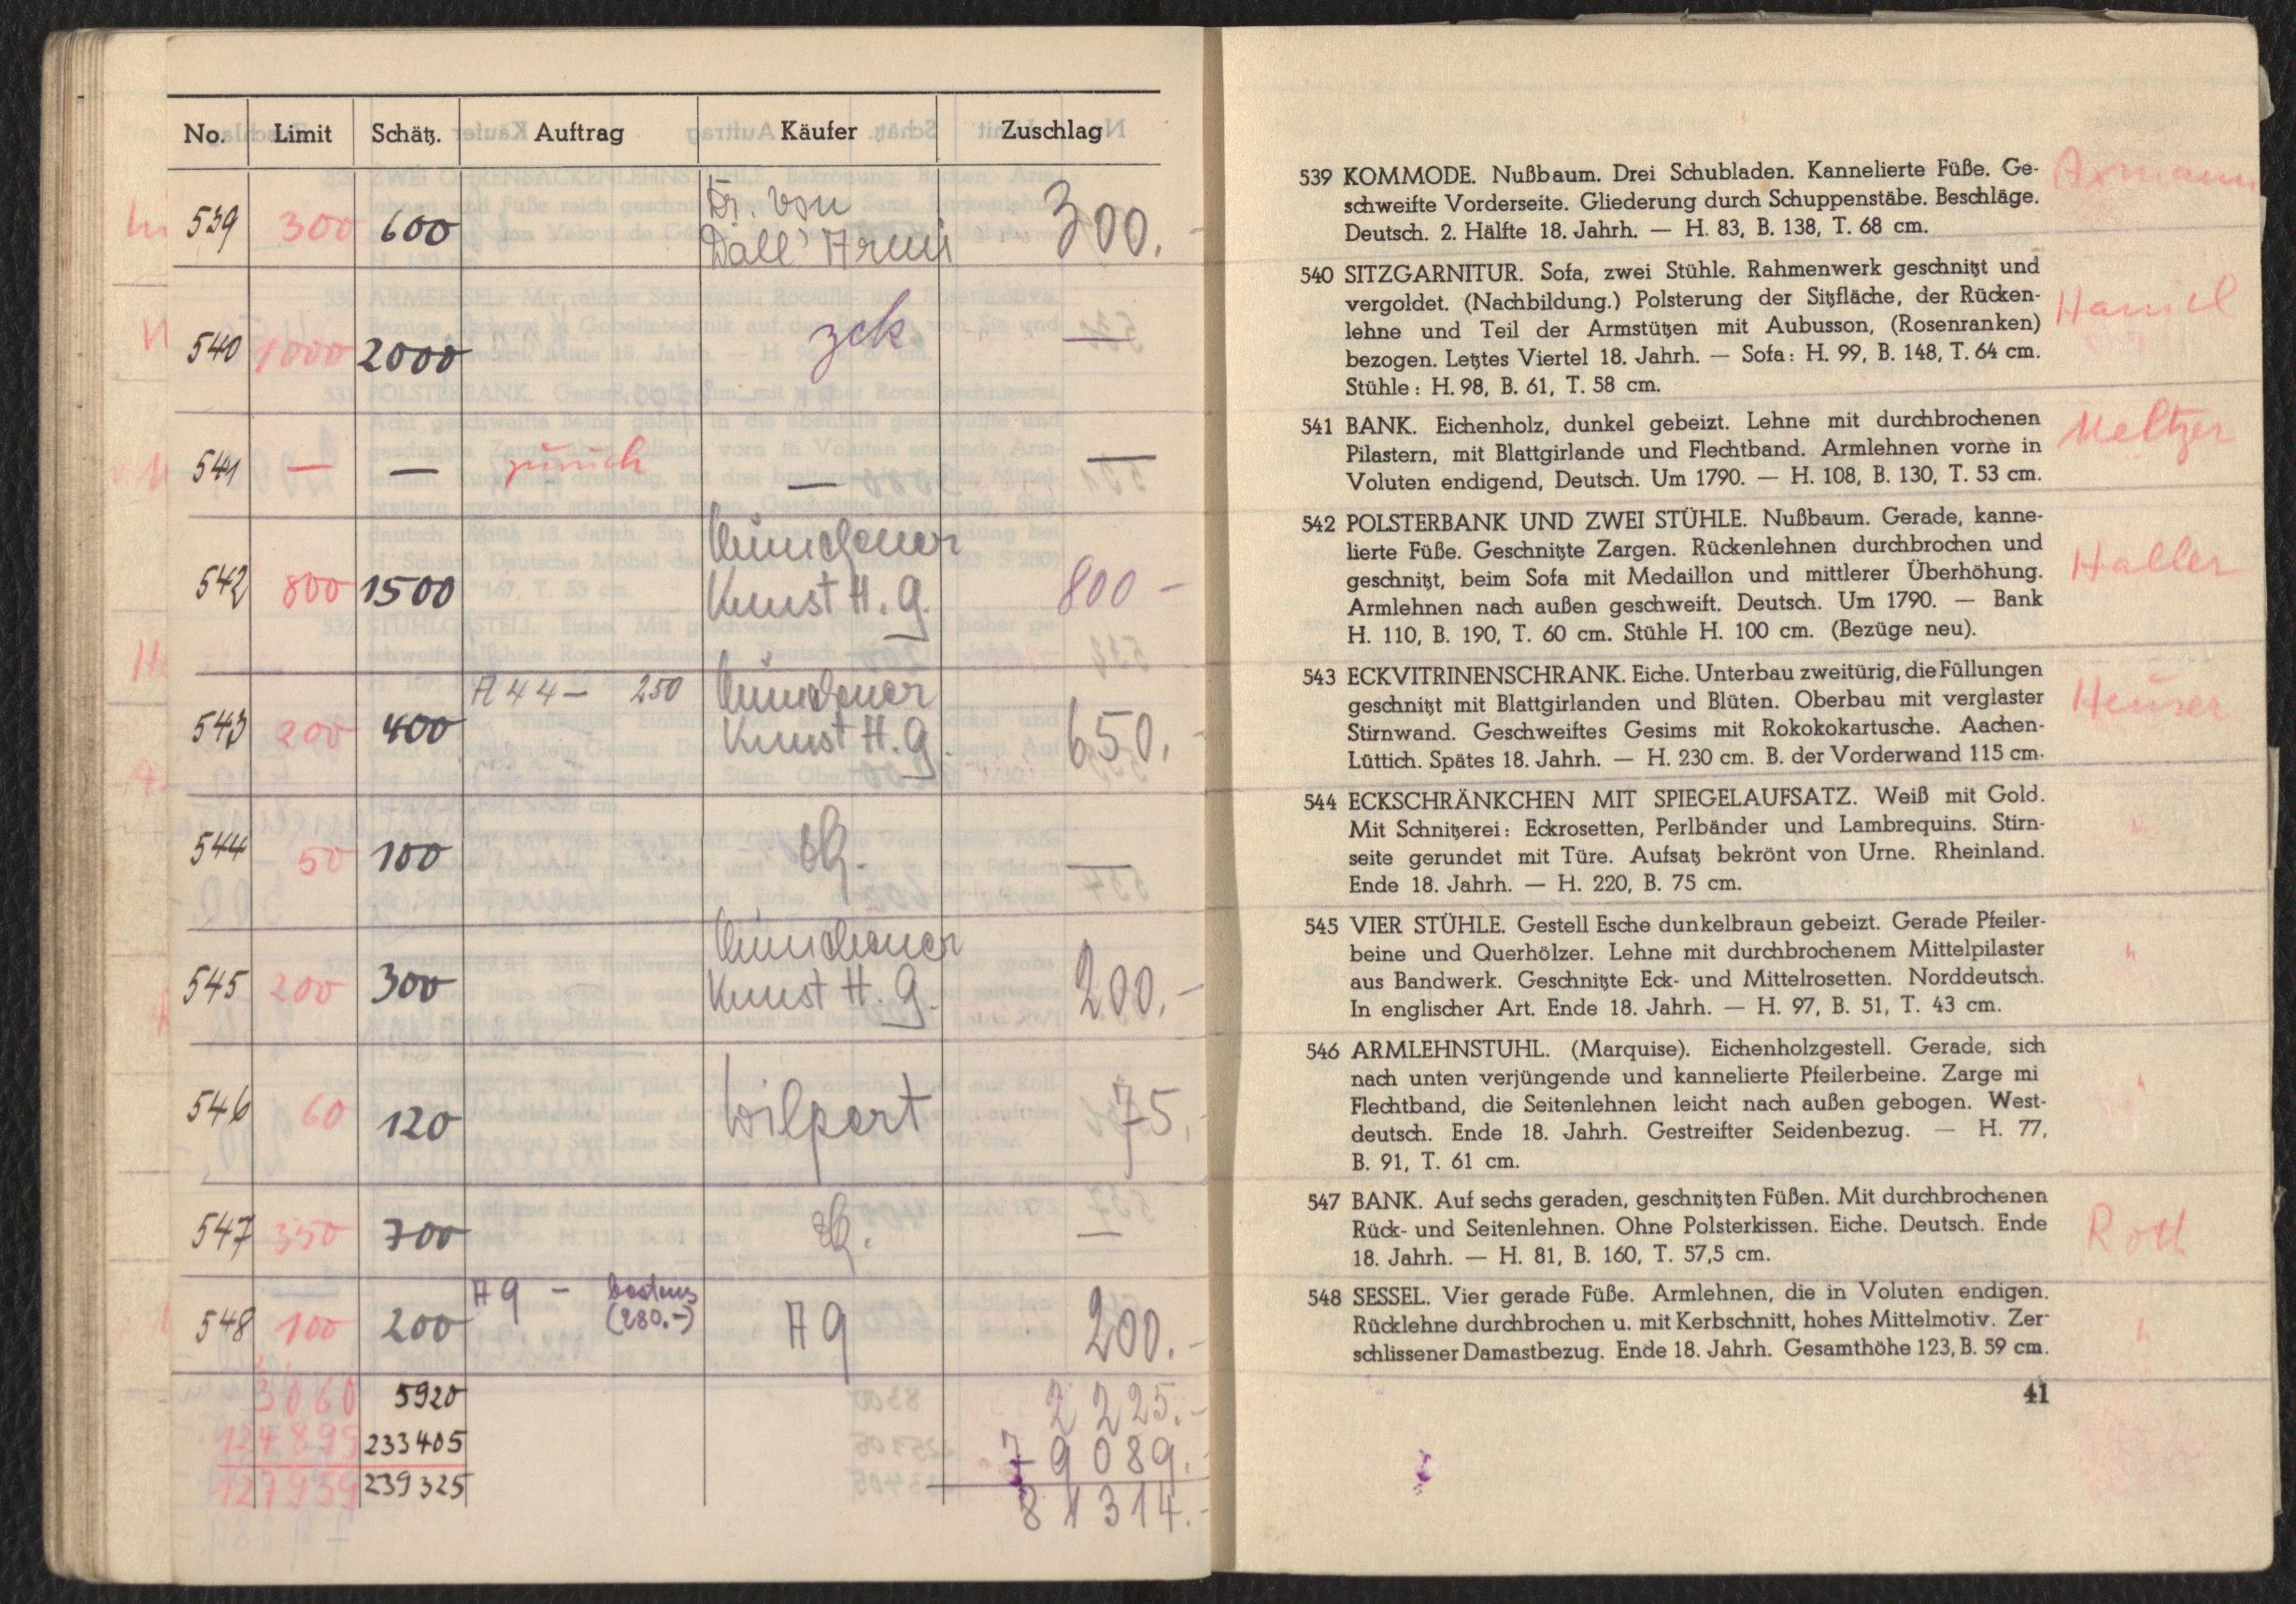 No. Limit Schätz. Auftrag Käufer Zuschlag
539 300 600 Dr. von Dall'Armi 300.-
540 1000 2000 zck —
541 — — zurück — —
542 800 1500 Münchener Kunst H. G. 800 -
543 200 400 A 44 - 250 Münchener Kunst H. G. 650.-
544 50 100 —
545 200 300 Münchener Kunst H. G. 200.-
546 60 120 Wilpert 75.-
547 350 700 —
548 100 200 A 9 - bestens (280.-) A 9 200.-
3060 5920 2225.-
124899 233405 79089.-
127959 239325 81314.-
539 KOMMODE. Nußbaum. Drei Schubladen. Kannelierte Füße. Ge-
schweifte Vorderseite. Gliederung durch Schuppenstäbe. Beschläge.
Deutsch. 2. Hälfte 18. Jahrh. — H. 83, B. 138, T. 68 cm.
Axmann
540 SITZGARNITUR. Sofa, zwei Stühle. Rahmenwerk geschnitzt und
vergoldet. (Nachbildung.) Polsterung der Sitzfläche, der Rücken-
lehne und Teil der Armstützen mit Aubusson, (Rosenranken)
bezogen. Letztes Viertel 18. Jahrh. — Sofa: H. 99, B. 148, T. 64 cm.
Stühle: H. 98, B. 61, T. 58 cm.
Haniel
541 BANK. Eichenholz, dunkel gebeizt. Lehne mit durchbrochenen
Pilastern, mit Blattgirlande und Flechtband. Armlehnen vorne in
Voluten endigend, Deutsch. Um 1790. — H. 108, B. 130, T. 53 cm.
Meltzer
542 POLSTERBANK UND ZWEI STÜHLE. Nußbaum. Gerade, kanne-
lierte Füße. Geschnitzte Zargen. Rückenlehnen durchbrochen und
geschnitzt, beim Sofa mit Medaillon und mittlerer Überhöhung.
Armlehnen nach außen geschweift. Deutsch. Um 1790. — Bank
H. 110, B. 190, T. 60 cm. Stühle H. 100 cm. (Bezüge neu).
Haller
543 ECKVITRINENSCHRANK. Eiche. Unterbau zweitürig, die Füllungen
geschnitzt mit Blattgirlanden und Blüten. Oberbau mit verglaster
Stirnwand. Geschweiftes Gesims mit Rokokokartusche. Aachen-
Lüttich. Spätes 18. Jahrh. — H. 230 cm. B. der Vorderwand 115 cm.
Heuser
544 ECKSCHRÄNKCHEN MIT SPIEGELAUFSATZ. Weiß mit Gold.
Mit Schnitzerei: Eckrosetten, Perlbänder und Lambrequins. Stirn-
seite gerundet mit Türe. Aufsatz bekrönt von Urne. Rheinland.
Ende 18. Jahrh. — H. 220, B. 75 cm.
"
545 VIER STÜHLE. Gestell Esche dunkelbraun gebeizt. Gerade Pfeiler-
beine und Querhölzer. Lehne mit durchbrochenem Mittelpilaster
aus Bandwerk. Geschnitzte Eck- und Mittelrosetten. Norddeutsch.
In englischer Art. Ende 18. Jahrh. — H. 97, B. 51, T. 43 cm.
"
546 ARMLEHNSTUHL. (Marquise). Eichenholzgestell. Gerade, sich
nach unten verjüngende und kannelierte Pfeilerbeine. Zarge mi
Flechtband, die Seitenlehnen leicht nach außen gebogen. West-
deutsch. Ende 18. Jahrh. Gestreifter Seidenbezug. — H. 77,
B. 91, T. 61 cm.
"
547 BANK. Auf sechs geraden, geschnitzten Füßen. Mit durchbrochenen
Rück- und Seitenlehnen. Ohne Polsterkissen. Eiche. Deutsch. Ende
18. Jahrh. — H. 81, B. 160, T. 57,5 cm.
Roth
548 SESSEL. Vier gerade Füße. Armlehnen, die in Voluten endigen.
Rücklehne durchbrochen u. mit Kerbschnitt, hohes Mittelmotiv. Zer-
schlissener Damastbezug. Ende 18. Jahrh. Gesamthöhe 123, B. 59 cm.
"
41